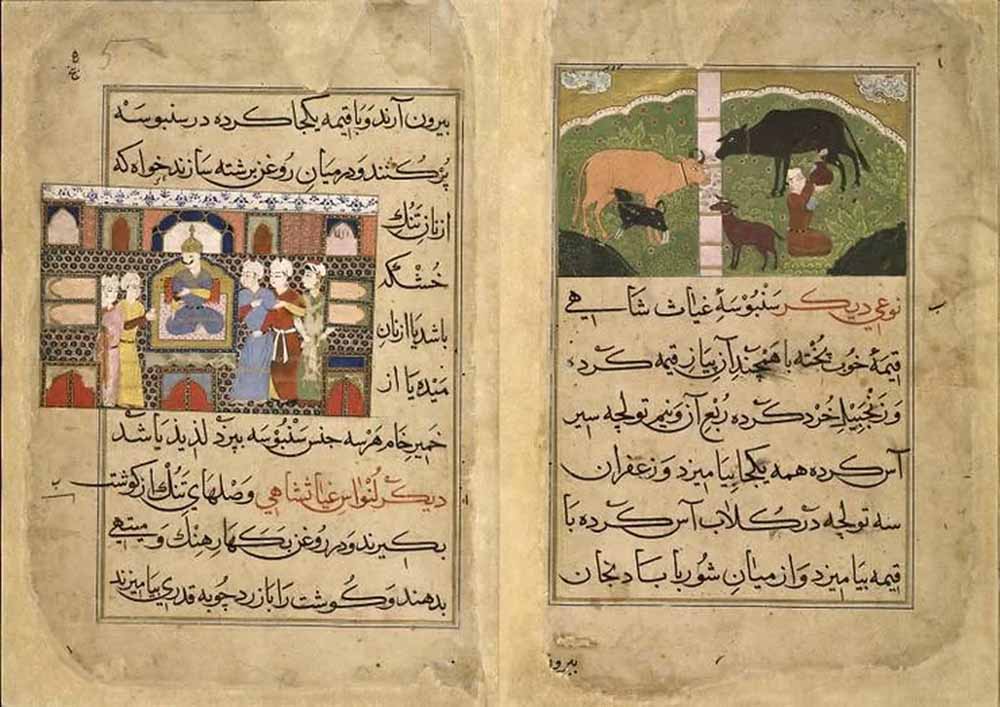 نوعی دیکر سنبوسۀ غیاث شاهی
قیمۀ خوب پخته با همچند آن پیاز قیمه کرده
و زنجبیل خرد کرده ربع آن و نیم تولچه سیر
آس کرده همه یکجا بیامیزد و زعفران
سه تولچه در کلاب آس کرده با
قیمه بیامیزد و از میان شوربا بادنجان
بیرون
بیرون آرند و با قیمه یکجا کرده در سنبوسه
پر کنند و در میان روغن برشته سازند خواه که
از نان تنك
خشکه
باشد یا از نان
میده یا از
خمیر خام هر سه جنس سنبوسه بپزد لذیذ باشد
دیکر غیاث شاهی وصلهای تنك از کوشت
بکیرند و در روغن بکهار هنك و میتهی
بدهند و کوشت را با زردچوبه قدری بیامیزند